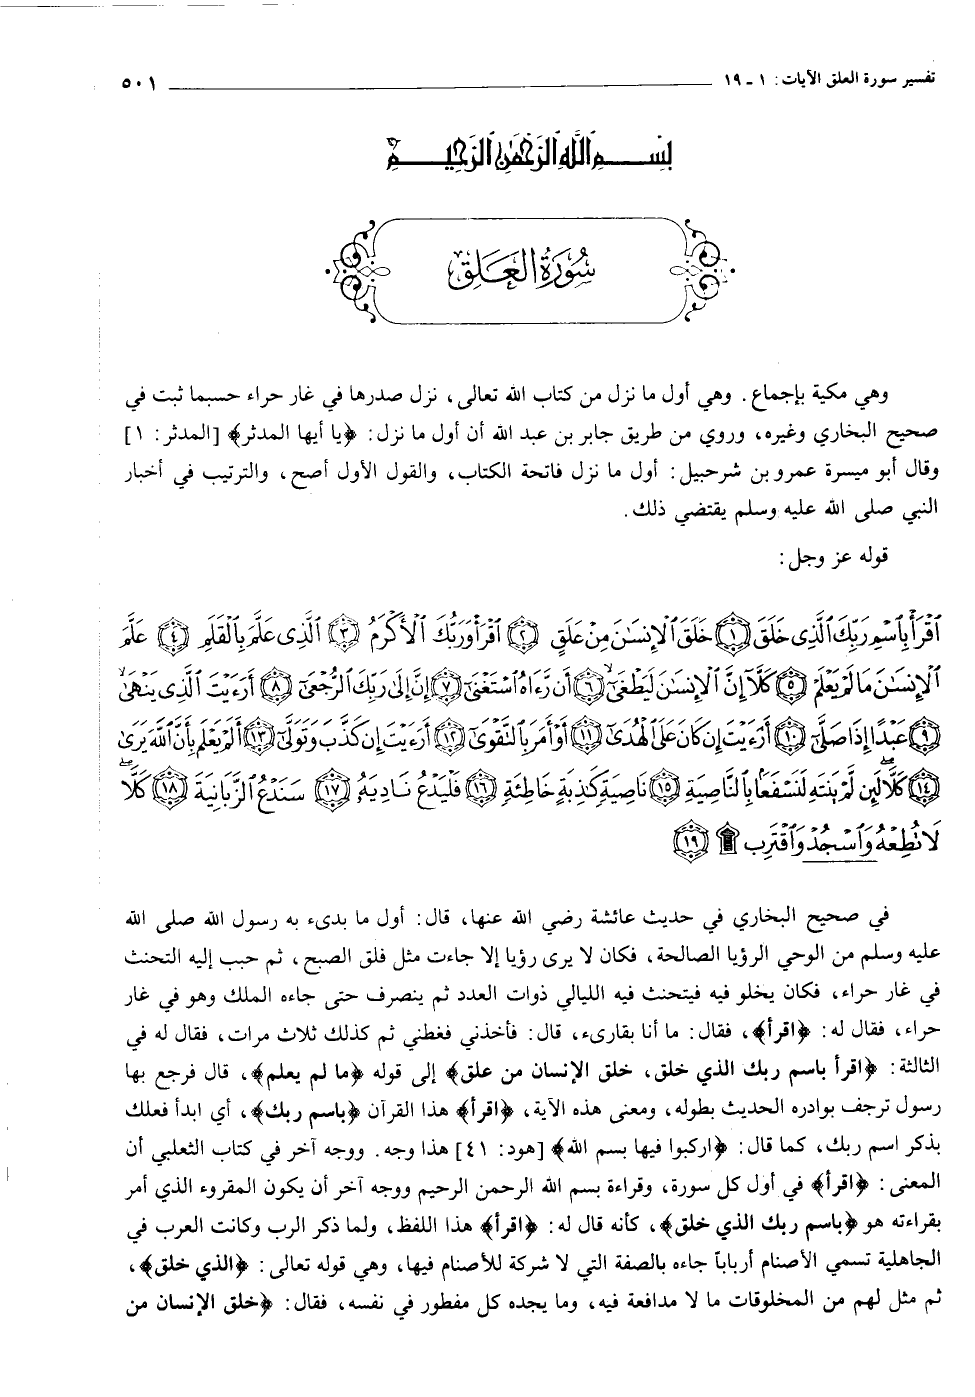 تفسير سورة العلق الآيات: ١ - ١٩ ٥٠١
بِسْمِ ٱللَّهِ ٱلرَّحْمَٰنِ ٱلرَّحِيمِ
سُورَةُ الْعَلَقِ
وهي مكية بإجماع. وهي أول ما نزل من كتاب الله تعالى، نزل صدرها في غار حراء حسبما ثبت في
صحيح البخاري وغيره، وروي من طريق جابر بن عبد الله أن أول ما نزل: ﴿يا أيها المدثر﴾ [المدثر: ١]
وقال أبو ميسرة عمرو بن شرحبيل: أول ما نزل فاتحة الكتاب، والقول الأول أصح، والترتيب في أخبار
النبي صلى الله عليه وسلم يقتضي ذلك.
قوله عز وجل:
ٱقْرَأْ بِٱسْمِ رَبِّكَ ٱلَّذِى خَلَقَ ﴿١﴾ خَلَقَ ٱلْإِنسَٰنَ مِنْ عَلَقٍ ﴿٢﴾ ٱقْرَأْ وَرَبُّكَ ٱلْأَكْرَمُ ﴿٣﴾ ٱلَّذِى عَلَّمَ بِٱلْقَلَمِ ﴿٤﴾ عَلَّمَ
ٱلْإِنسَٰنَ مَا لَمْ يَعْلَمْ ﴿٥﴾ كَلَّآ إِنَّ ٱلْإِنسَٰنَ لَيَطْغَىٰٓ ﴿٦﴾ أَن رَّءَاهُ ٱسْتَغْنَىٰٓ ﴿٧﴾ إِنَّ إِلَىٰ رَبِّكَ ٱلرُّجْعَىٰٓ ﴿٨﴾ أَرَءَيْتَ ٱلَّذِى يَنْهَىٰ
﴿٩﴾ عَبْدًا إِذَا صَلَّىٰٓ ﴿١٠﴾ أَرَءَيْتَ إِن كَانَ عَلَى ٱلْهُدَىٰٓ ﴿١١﴾ أَوْ أَمَرَ بِٱلتَّقْوَىٰٓ ﴿١٢﴾ أَرَءَيْتَ إِن كَذَّبَ وَتَوَلَّىٰٓ ﴿١٣﴾ أَلَمْ يَعْلَم بِأَنَّ ٱللَّهَ يَرَىٰ
﴿١٤﴾ كَلَّا لَئِن لَّمْ يَنتَهِ لَنَسْفَعًۢا بِٱلنَّاصِيَةِ ﴿١٥﴾ نَاصِيَةٍ كَٰذِبَةٍ خَاطِئَةٍ ﴿١٦﴾ فَلْيَدْعُ نَادِيَهُۥ ﴿١٧﴾ سَنَدْعُ ٱلزَّبَانِيَةَ ﴿١٨﴾ كَلَّا
لَا تُطِعْهُ وَٱسْجُدْ وَٱقْتَرِب ۩ ﴿١٩﴾
في صحيح البخاري في حديث عائشة رضي الله عنها، قال: أول ما بدىء به رسول الله صلى الله
عليه وسلم من الوحي الرؤيا الصالحة، فكان لا يرى رؤيا إلا جاءت مثل فلق الصبح، ثم حبب إليه التحنث
في غار حراء، فكان يخلو فيه فيتحنث فيه الليالي ذوات العدد ثم ينصرف حتى جاءه الملك وهو في غار
حراء، فقال له: ﴿اقرأ﴾، فقال: ما أنا بقارىء، قال: فأخذني فغطني ثم كذلك ثلاث مرات، فقال له في
الثالثة: ﴿اقرأ باسم ربك الذي خلق، خلق الإنسان من علق﴾ إلى قوله ﴿ما لم يعلم﴾، قال فرجع بها
رسول ترجف بوادره الحديث بطوله، ومعنى هذه الآية، ﴿اقرأ﴾ هذا القرآن ﴿باسم ربك﴾، أي ابدأ فعلك
بذكر اسم ربك، كما قال: ﴿اركبوا فيها بسم الله﴾ [هود: ٤١] هذا وجه. ووجه آخر في كتاب الثعلبي أن
المعنى: ﴿اقرأ﴾ في أول كل سورة، وقراءة بسم الله الرحمن الرحيم ووجه آخر أن يكون المقروء الذي أمر
بقراءته هو ﴿باسم ربك الذي خلق﴾، كأنه قال له: ﴿اقرأ﴾ هذا اللفظ، ولما ذكر الرب وكانت العرب في
الجاهلية تسمي الأصنام أرباباً جاءه بالصفة التي لا شركة للأصنام فيها، وهي قوله تعالى: ﴿الذي خلق﴾،
ثم مثل لهم من المخلوقات ما لا مدافعة فيه، وما يجده كل مفطور في نفسه، فقال: ﴿خلق الإنسان من